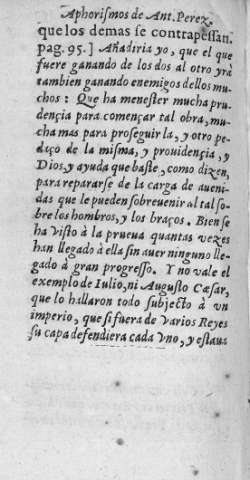 Aphorismos de Ant. Perez.
que los demas se contrapessan.
pag. 95.] Añadiria yo, que el que
fuere ganando de los dos al otro yrà
tambien ganando enemigos dellos mu
chos: Que ha menester mucha pru
dençia para començar tal obra, mu
cha mas para proseguir la, y otro pe
daço de la misma, y prouidençia, y
Dios, y ayuda que baste, como dizen,
para repararse de la carga de aueni
das que le pueden sobreuenir al tal so
bre los hombros, y los braços. Bien se
ha visto à la prueua quantas vezes
han llegado à ella sin auer ninguno lle
gado à gran progresso. Y no vale el
exemplo de Iulio, ni Augusto Cæsar,
que lo hallaron todo subjecto à vn
imperio, que si fuera de varios Reyes
su capa defendiera cada vno, y estaua